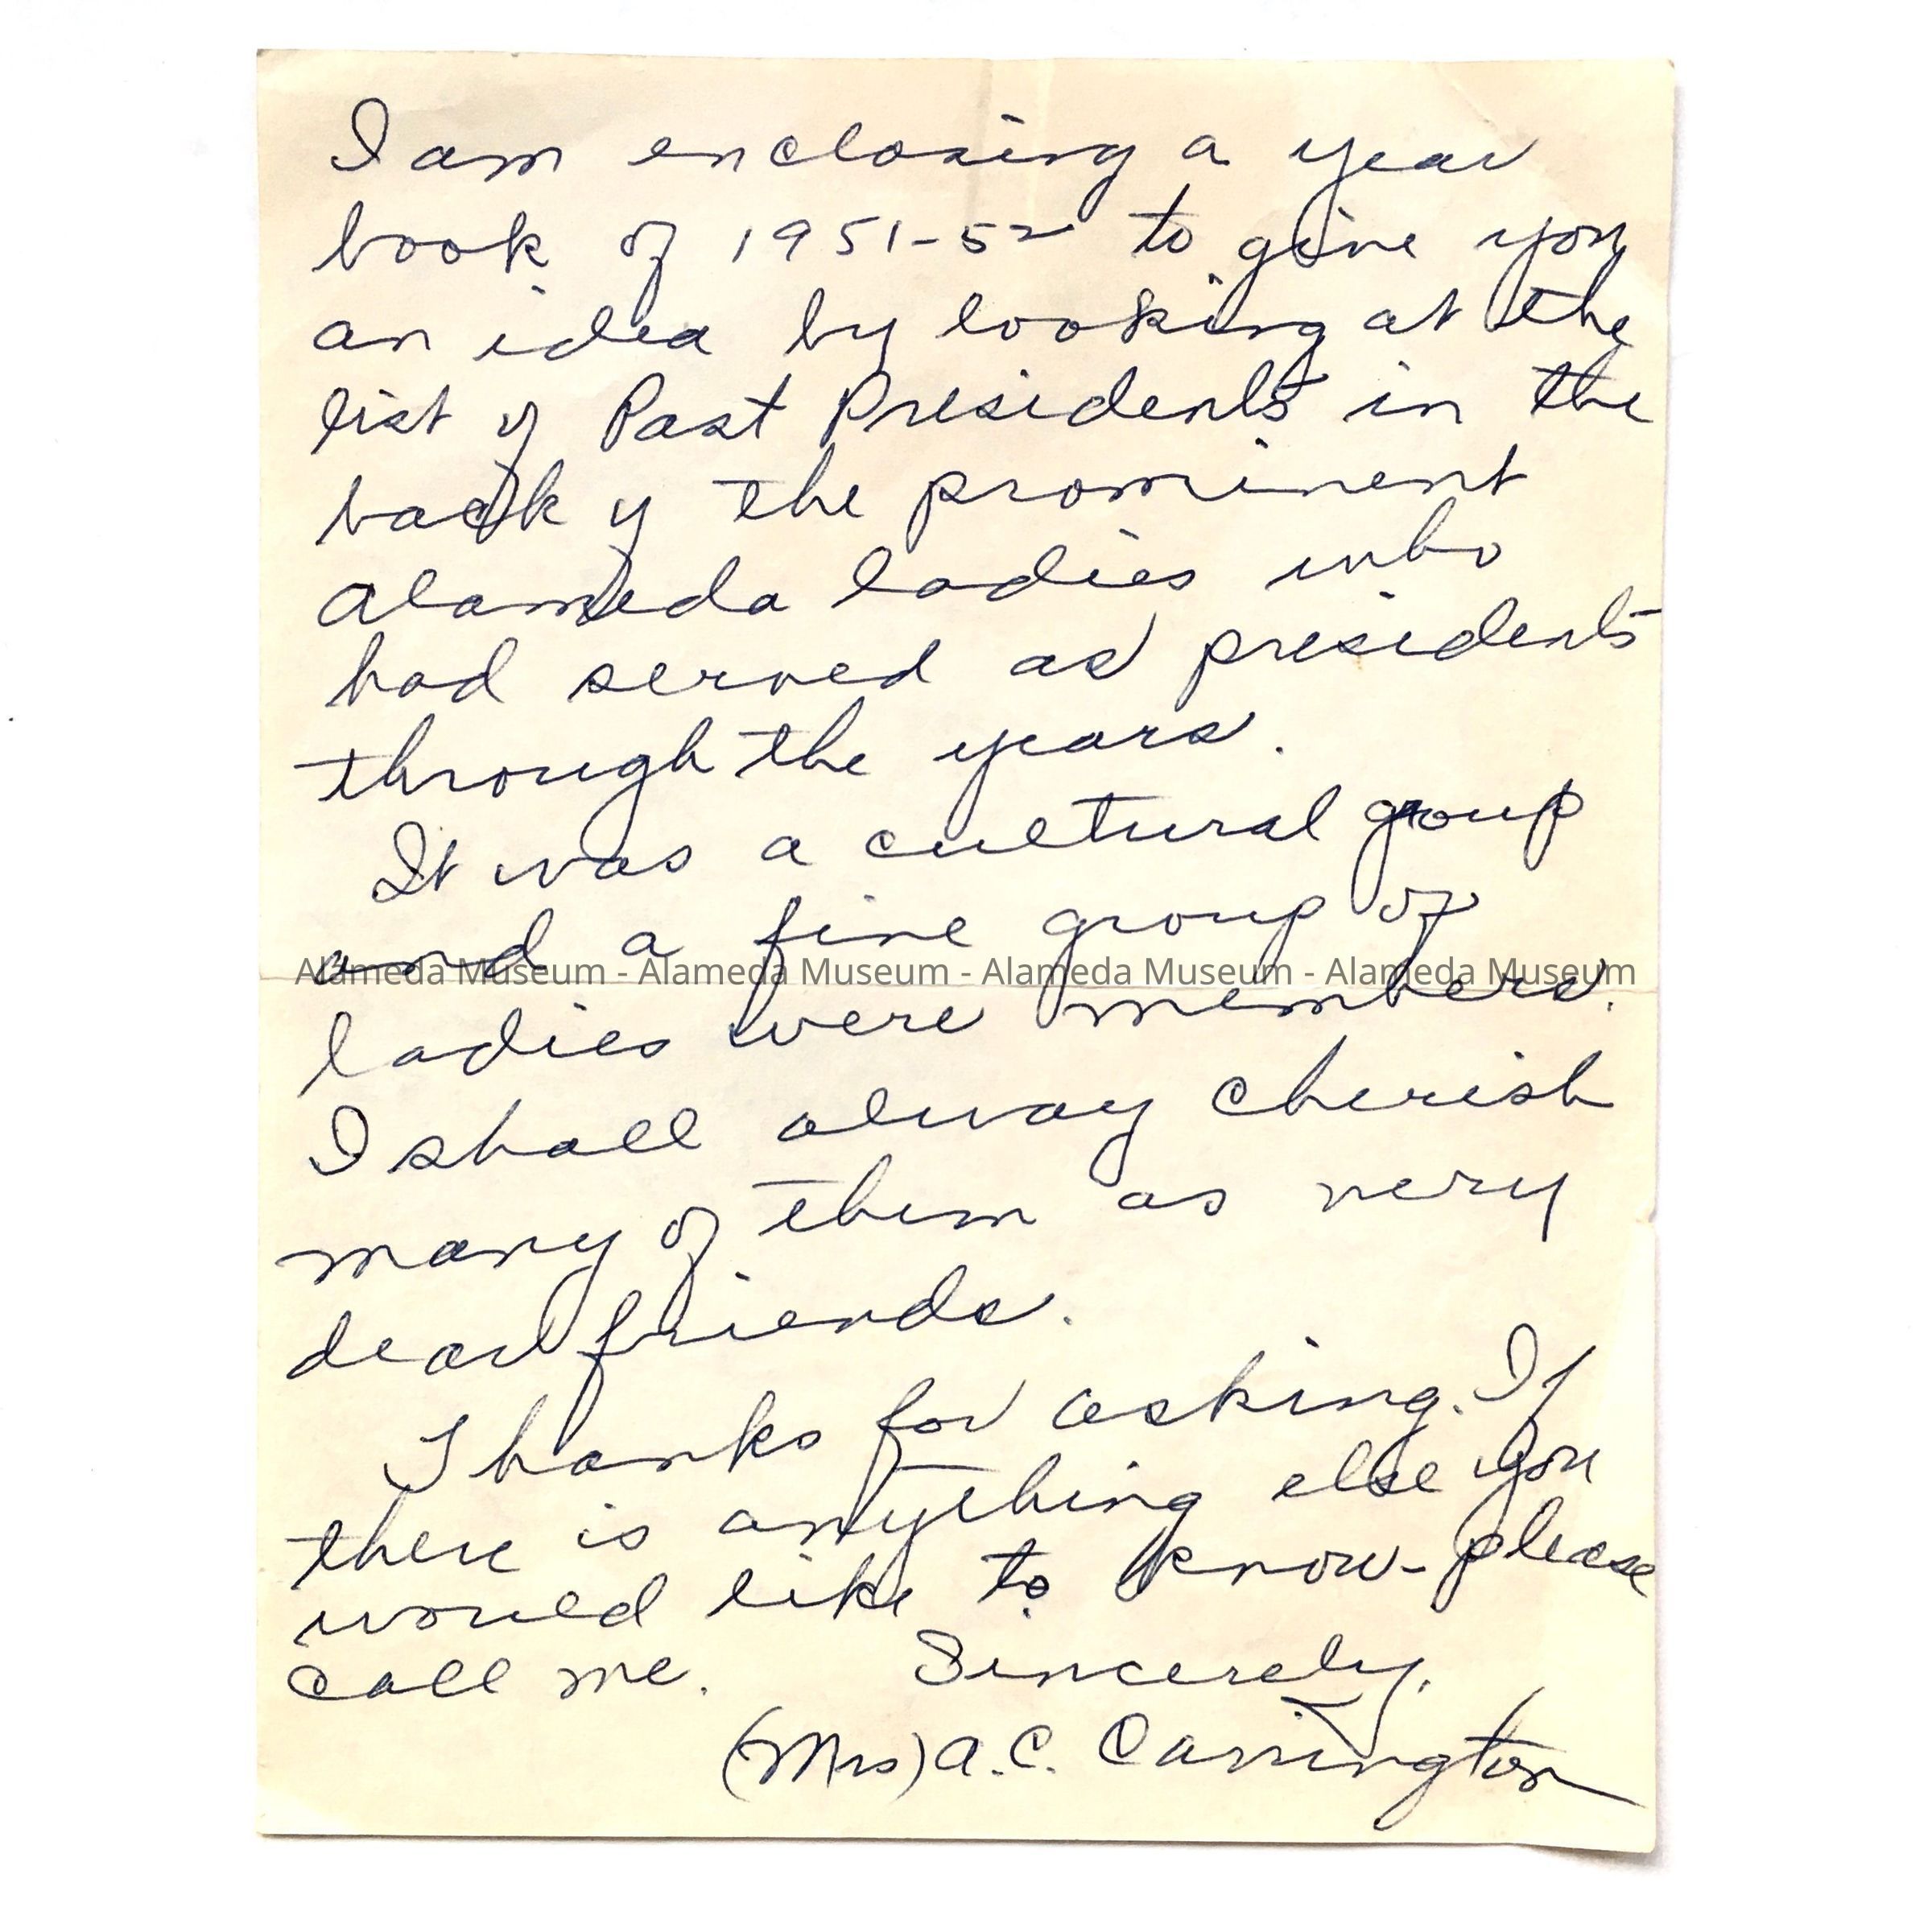 I am enclosing a year
book of 1951-52 to give you
an idea by looking at the
list of Past Presidents in the
back of the prominent
Alameda ladies who
had served as presidents
through the years.
It was a cultural group
and a fine group of
Alameda Museum - Alameda Museum - Alameda Museum - Alameda Museum
ladies were members.
I shall alway cherish
many of them as very
dear friends.
Thanks for asking. If
there is anything else you
would like to know - please
call me. Sincerely,
(Mrs) A.C. Carrington